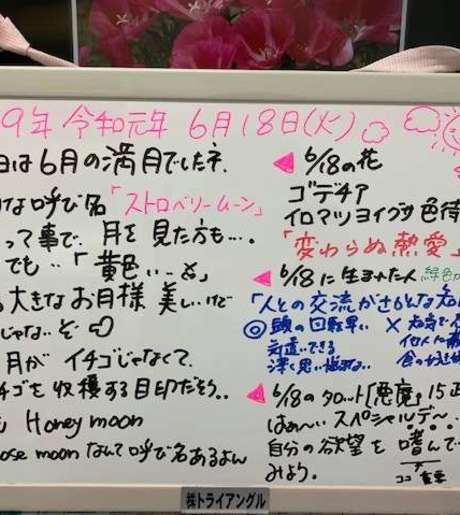 9年 令和元年 6月18日(火)
日は6月の満月でしたネ.
な呼び名「ストロベリームーン」
って事で、月を見た方も….
でも‥「黄色ぃ…
大きなお月様 美しいけど
じゃないぞ
月が イチゴじゃなくて.
チゴを収穫する目印だそう..
Honey moon
ose moon なんて呼び名あるよん
6/18の花
ゴデチア
イロマツヨイグサ 色待
「変わらぬ熱愛」
6/18に生まれた人 緑色
「人との交流がさかんな
◎頭の回転早い ×
気遣いできる 他人に
深く思い悩まない 食の
6/18のタロット「悪魔」15 正
はぁ〜い スペシャルデ〜
自分の欲望を嗜んで
みよう.
ココ 重要
㈱トライアングル